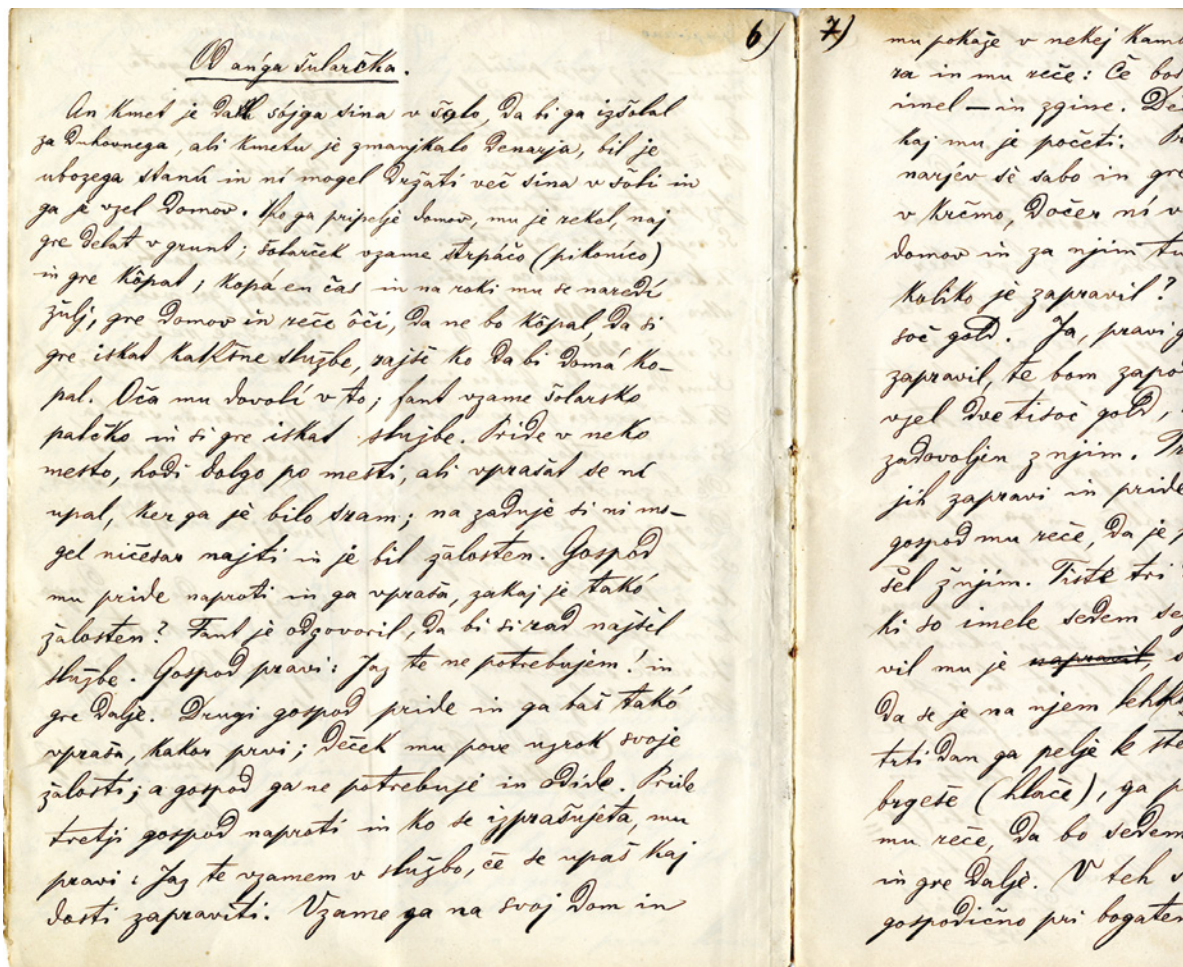 6)
Od an'ga šularčka.
An kmet je dal sójga sina v šolo, da bi ga izšolal
za duhovnega, ali kmetu je zmanjkalo denarja, bil je
ubozega stanú in ní mogel držati več sina v šoli in
ga je vzel domov. Ko ga pripeljè domov, mu je rekel, naj
gre delat v grunt; šolarček vzame štrpáčo (pikonico)
in gre kôpat; kopá en čas in na roki mu se naredi
žulj, gre domov in reče ôči, da ne bo kôpal, da si
gre iskat kakšne službe, rajše ko da bi domá ko-
pal. Oča mu dovolí v to; fant vzame šolarsko
palčko in si gre iskat službe. Pride v neko
mesto, hodi dolgo po mesti, ali vprašat se ní
upal, ker ga je bilo sram; na zadnje si ni mo-
gel ničesar najti in je bil žalosten. Gospod
mu pride naproti in ga vpraša, zakaj je takó
žalosten? Fant je odgovoril, da bi si rad najšel
službe. Gospod pravi: Jaz te ne potrebujem! in
gre dalje. Drugi gospod pride in ga baš takó
vpraša, kakor prvi; deček mu pove uzrok svoje
žalosti; a gospod ga ne potrebuje in odide. Pride
tretji gospod naproti in ko se izprašujeta, mu
pravi: Jaz te vzamem v službo, če se upaš kaj
dosti zapraviti. Vzame ga na svoj dom in
7)
mu pokaže v nekej kamb
ra in mu reče: Če bos
imel — in zgine. De
kaj mu je početi. Pr
narjév sè sabo in gre
v krčmo, dočer ní v
domov in za njim tu
koliko je zapravil?
soč gold. Ja, pravi g
zapravil, te bom zapo
vzel dve tisoč gold,
zadovoljen z njim. Tr
jih zapravi in pride
gospod mu reče, da je p
šel žnjim. Tiste tri
ki so imele sedem se
vil mu je napravil, s
da se je na njem lehko
trti dan ga pelje k ste
brgeše (hlače), ga p
mu reče, da bo sedem
in gre dalje. V teh s
gospodično pri bogatem